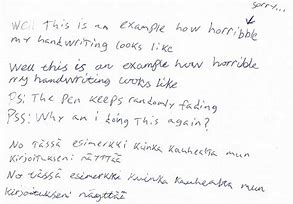 sorry...
Well This is an example how horribble
my handwriting looks like
Well this is an example how horrible
my handwriting looks like
PS: The pen keeps randomly fading
PSS: Why am i doing this again?
No tässä esimerkki kuinka kauhealta mun
kirjoitukseni näyttää
No tässä esimerkki kuinka kauhealta mun
kirjoitukseni näyttää